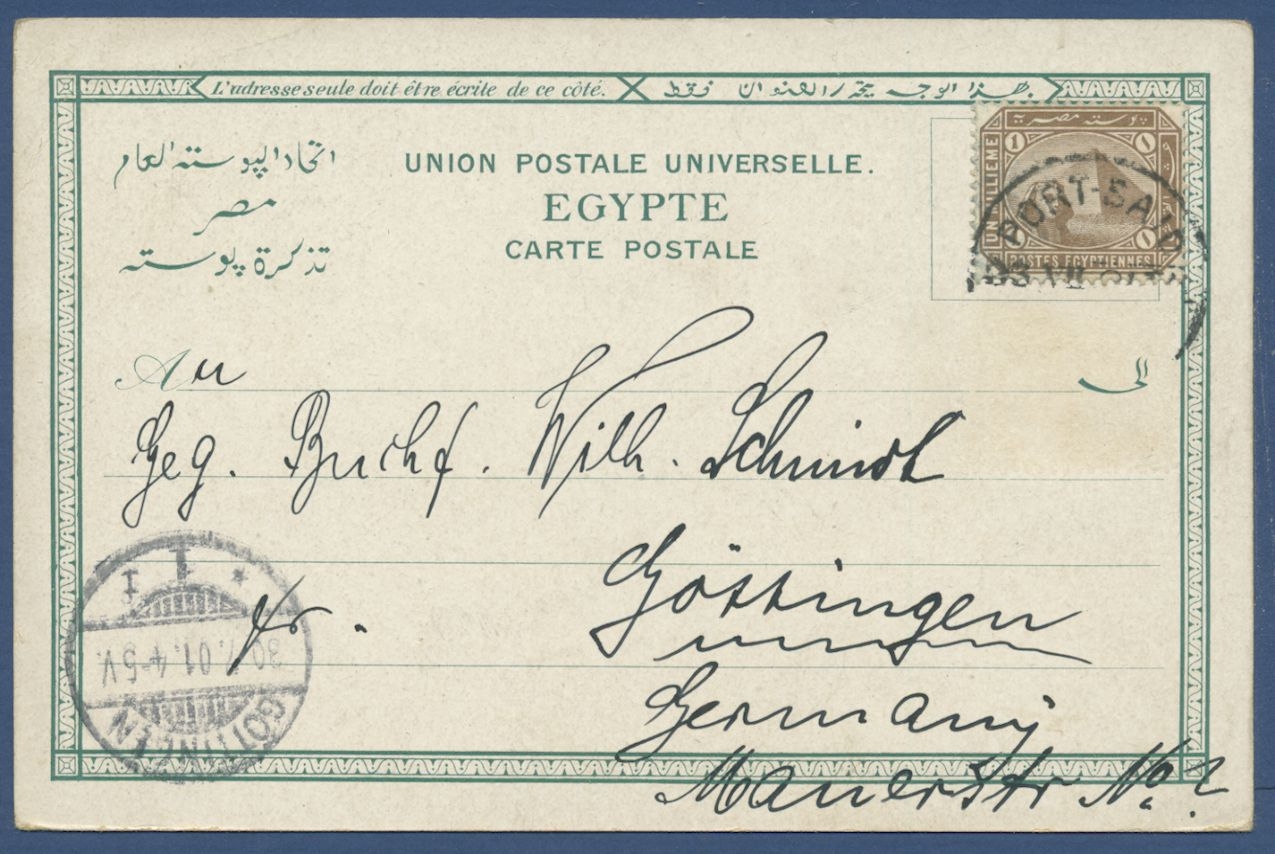 L'adresse seule doit être écrite de ce côté. هذا الوجه يحرر العنوان فقط
اتحاد البوسته العام
مصر
تذكرة بوسته
UNION POSTALE UNIVERSELLE.
EGYPTE
CARTE POSTALE
بوسته مصرية
1 1
UN MILLIEME
POSTES EGYPTIENNES
PORT-SAID
VII
An
الى
Geg. Buchf. Wilh. Schmidt
Göttingen
Germany
Mauerstr No.
fr.
GÖTTINGEN
30.7.01.4-5V.
1